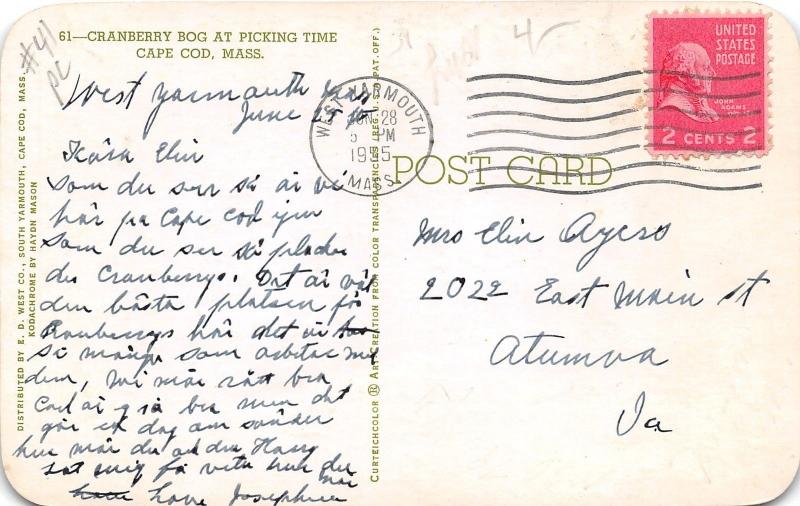 61—CRANBERRY BOG AT PICKING TIME
CAPE COD, MASS.
#41
pc
West yarmouth
June
Kära Elin
Som du ser så ai vi
här pa Cape Cod
Som du ser så plockar
du Cranberrys. Det ai
den bästa platsen för
Cranberrys här det ai
så många som arbetar med
dem, vi mår rätt bra
Carl ai bra men det
går en dag om sänder
hur mår du och du Harry
Låt mig få veta hur du
mår
Love Josephine
DISTRIBUTED BY E. D. WEST CO., SOUTH YARMOUTH, CAPE COD, MASS.
KODACHROME BY HAYDN MASON
CURTEICHCOLOR ® ART-CREATION FROM COLOR TRANSPARENCIES (REG. U.S. PAT. OFF.)
31
4-
WEST YARMOUTH
JUN 28
5 PM
1955
MASS.
UNITED
STATES
POSTAGE
JOHN
ADAMS
2 CENTS 2
POST CARD
Mrs Elin Ayers
2022 East Main st
Atumva
Ia